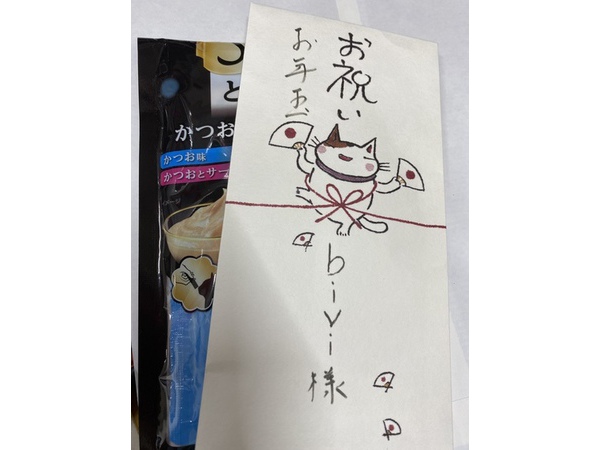 お祝い
お年玉
bivi様
と
かつお
かつお味
かつおとサー